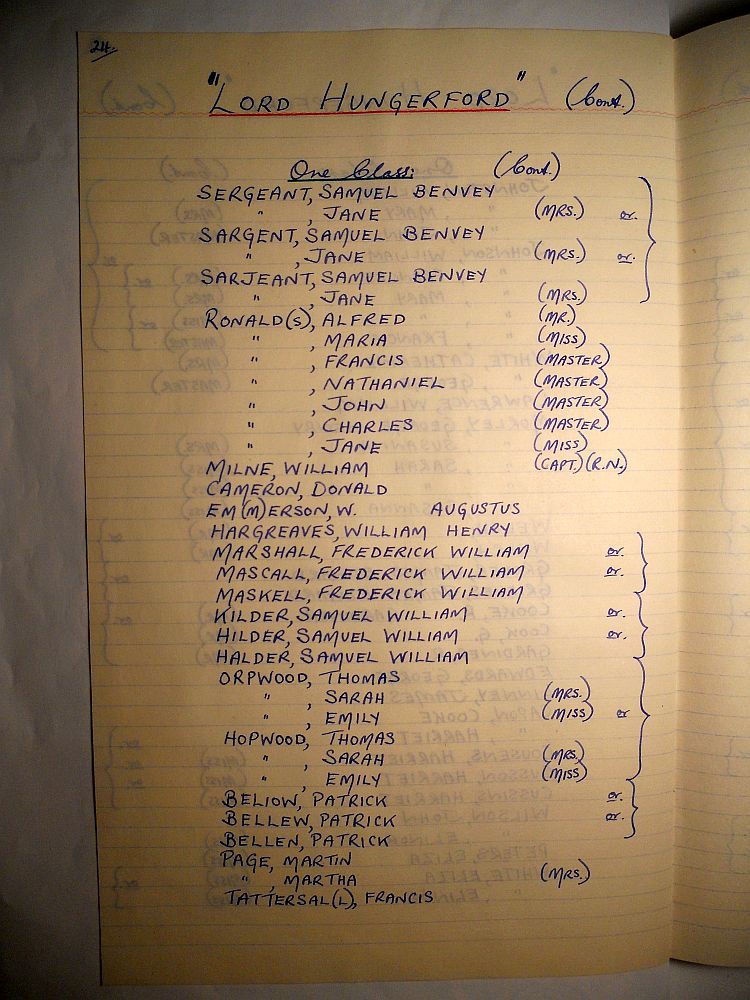 24.
"LORD HUNGERFORD" (Cont.)
One Class: (Cont.)
SERGEANT, SAMUEL BENVEY
" , JANE (MRS.) or.
SARGENT, SAMUEL BENVEY
" , JANE (MRS.) or.
SARJEANT, SAMUEL BENVEY
" , JANE (MRS.)
RONALD(S), ALFRED (MR.)
" , MARIA (MISS)
" , FRANCIS (MASTER)
" , NATHANIEL (MASTER)
" , JOHN (MASTER)
" , CHARLES (MASTER)
" , JANE (MISS)
MILNE, WILLIAM (CAPT.) (R.N.)
CAMERON, DONALD
EM(M)ERSON, W. AUGUSTUS
HARGREAVES, WILLIAM HENRY
MARSHALL, FREDERICK WILLIAM or.
MASCALL, FREDERICK WILLIAM or.
MASKELL, FREDERICK WILLIAM
KILDER, SAMUEL WILLIAM or.
HILDER, SAMUEL WILLIAM or.
HALDER, SAMUEL WILLIAM
ORPWOOD, THOMAS
" , SARAH (MRS.)
" , EMILY (MISS) or
HOPWOOD, THOMAS
" , SARAH (MRS.)
" , EMILY (MISS)
BELIOW, PATRICK or.
BELLEW, PATRICK or.
BELLEN, PATRICK
PAGE, MARTIN
" , MARTHA (MRS.)
TATTERSAL(L), FRANCIS